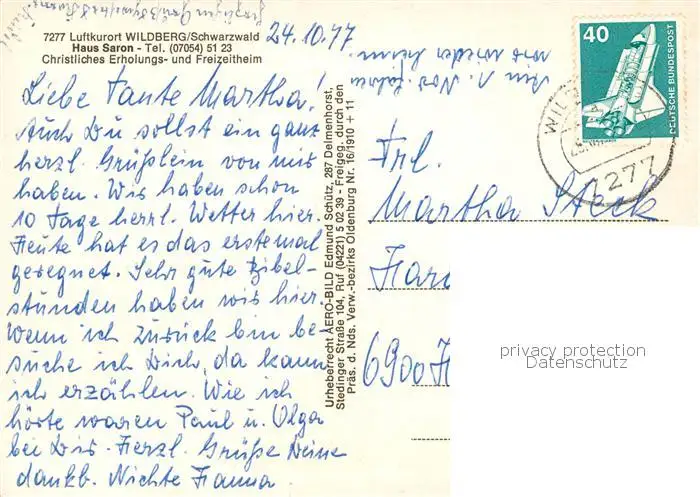 7277 Luftkurort WILDBERG/Schwarzwald
Haus Saron - Tel. (07054) 51 23
Christliches Erholungs- und Freizeitheim
24.10.77
Liebe Tante Martha!
Auch Du sollst ein ganz
herzl. Grüßlein von mir
haben. Wir haben schon
10 Tage herrl. Wetter hier.
Heute hat es das erstemal
geregnet. Sehr gute Bibel-
stunden haben wir hier.
Wenn ich zurück bin be-
suche ich Dich, da kann
ich erzählen. Wie ich
hörte waren Paul u. Olga
bei Dir. Herzl. Grüße Deine
dankb. Nichte Hanna.
Am 1. Nov. fahren
wir wieder heim.
Urheberrecht AERO-BILD Edmund Schütz, 287 Delmenhorst,
Stedinger Straße 104, Ruf (04221) 5 02 39 - Freigeg. durch den
Präs. d. Nds. Verw.-bezirks Oldenburg Nr. 16/1910 + 11
40
DEUTSCHE BUNDESPOST
WIL
7277
Frl.
Martha Steck
6900 H
privacy protection
Datenschutz